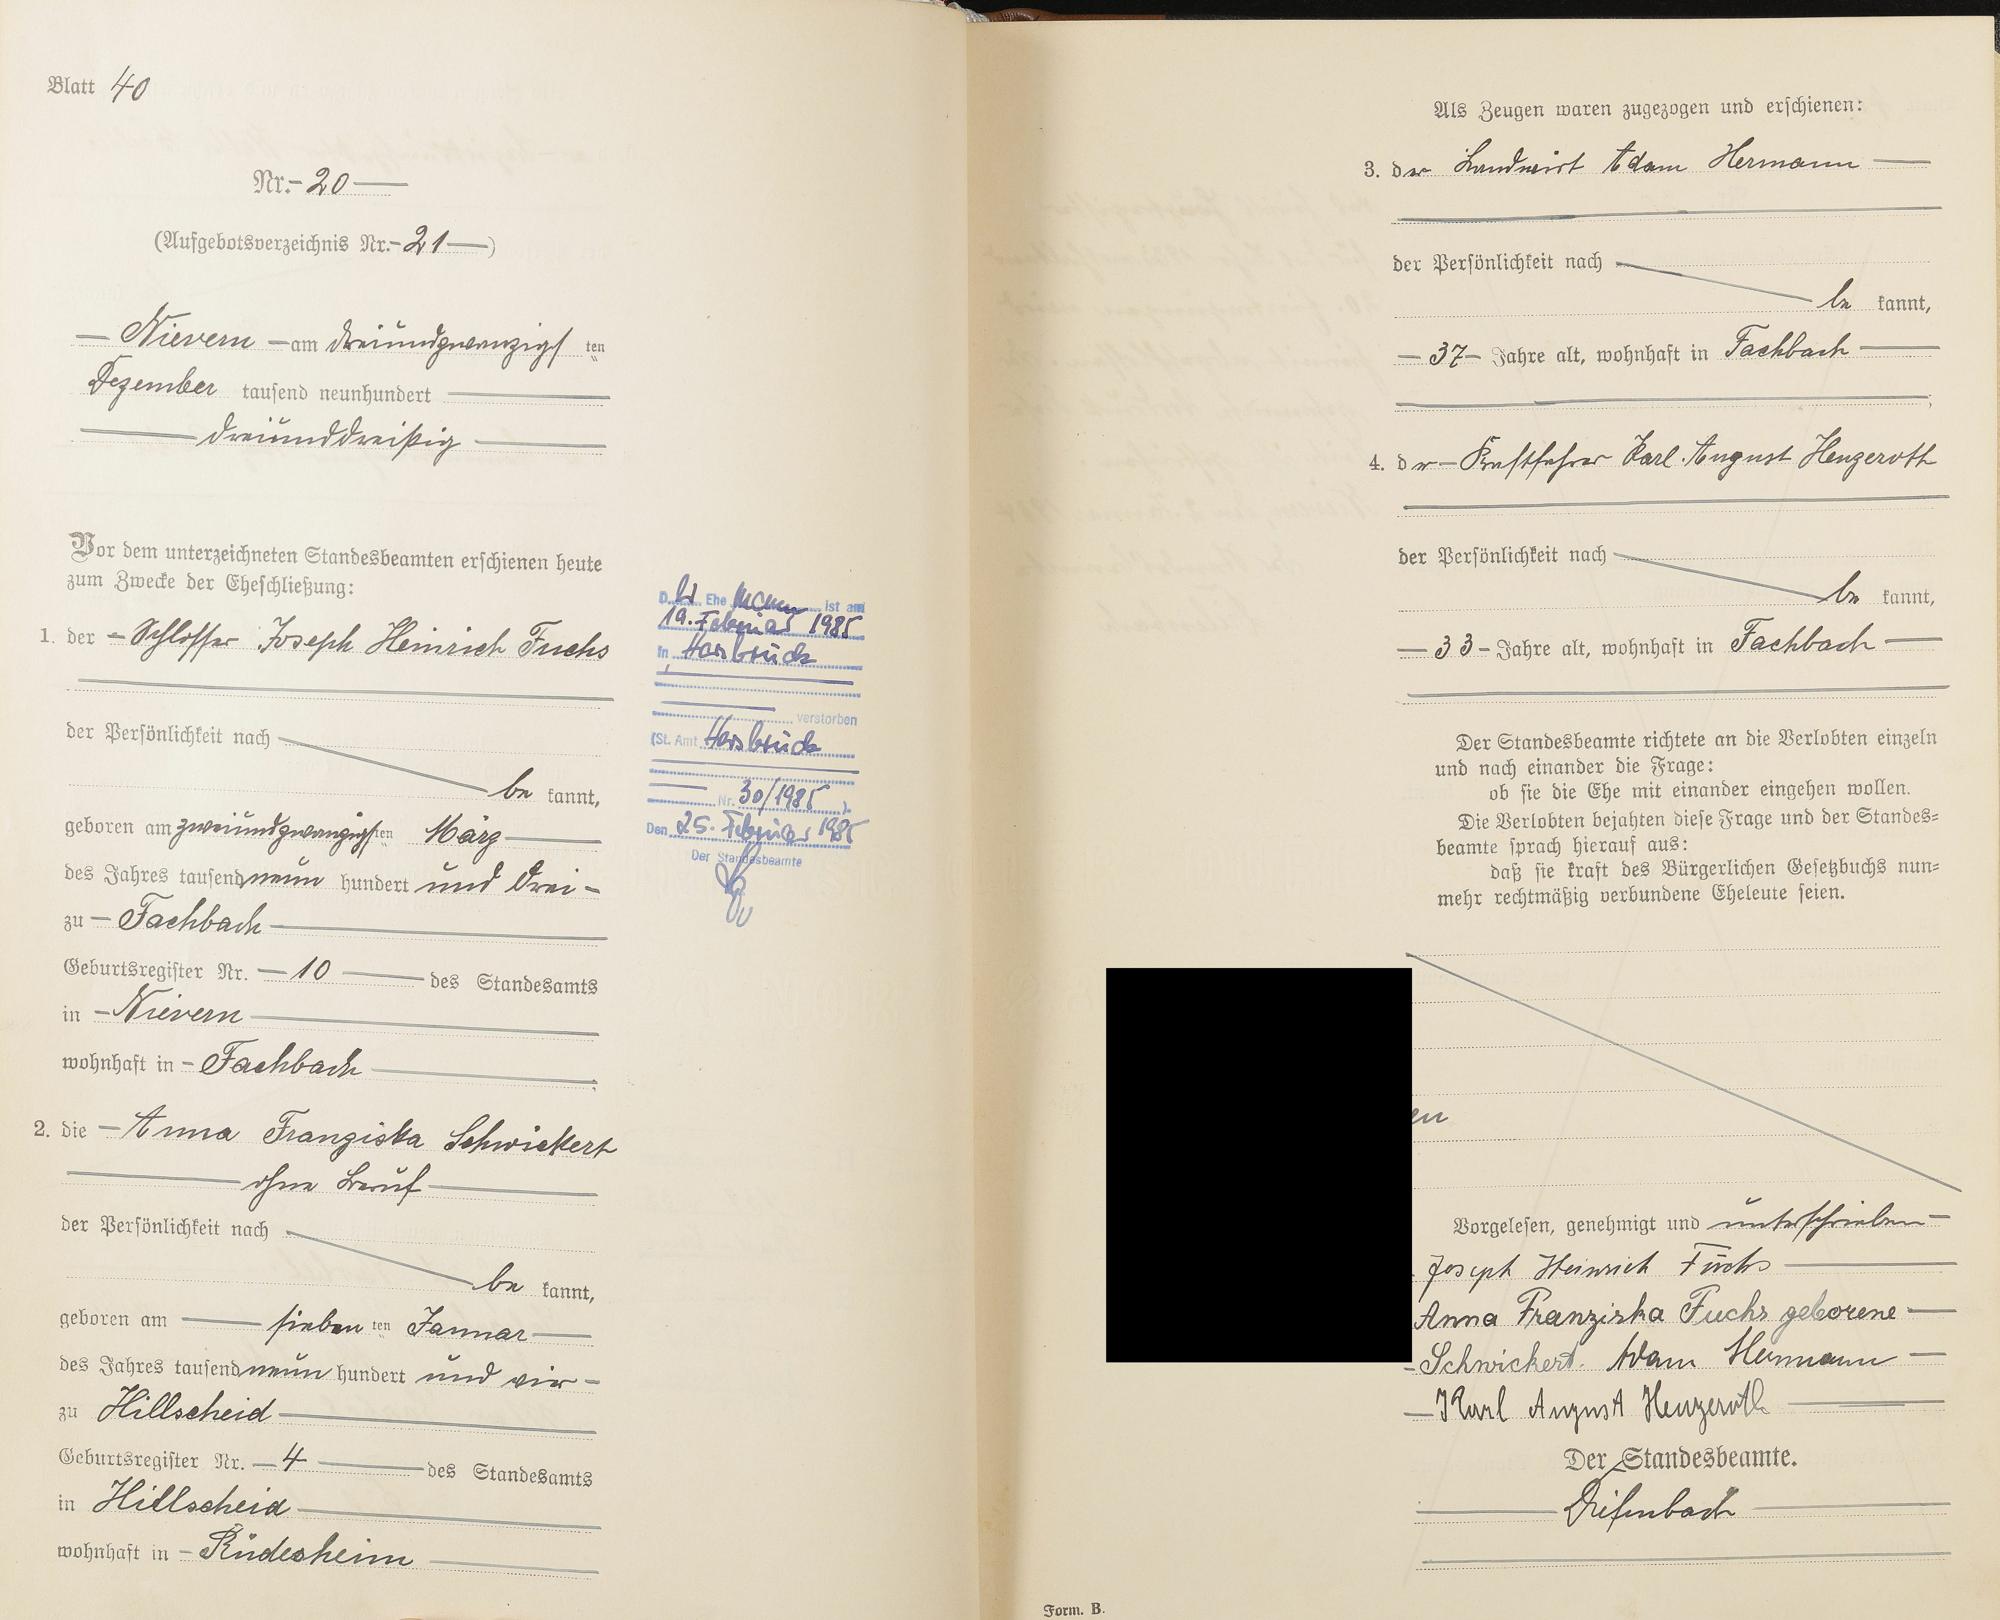 Blatt 40
Nr. 20
(Aufgebotsverzeichnis Nr. 21)
Nievern am dreiundzwanzigsten
Dezember tausend neunhundert
dreiunddreißig
Vor dem unterzeichneten Standesbeamten erschienen heute
zum Zwecke der Eheschließung:
1. der Schlosser Joseph Heinrich Fuchs
der Persönlichkeit nach
be kannt,
geboren am zweiundzwanzigsten März
des Jahres tausend neun hundert und drei
zu Fachbach
Geburtsregister Nr. 10 des Standesamts
in Nievern
wohnhaft in Fachbach
2. die Anna Franziska Schwickert
ohne Beruf
der Persönlichkeit nach
be kannt,
geboren am sieben ten Januar
des Jahres tausend neun hundert und vier
zu Hillscheid
Geburtsregister Nr. 4 des Standesamts
in Hillscheid
wohnhaft in Rüdesheim
D er Ehe mann ist am
19. Februar 1985
in Hersbruck
verstorben
(St. Amt Hersbruck
Nr. 30/1985 ).
Den 25. Februar 1985
Der Standesbeamte
Als Zeugen waren zugezogen und erschienen:
3. der Landwirt Adam Hermann
der Persönlichkeit nach
be kannt,
37 Jahre alt, wohnhaft in Fachbach
4. der Kraftfahrer Karl August Henzeroth
der Persönlichkeit nach
be kannt,
33 Jahre alt, wohnhaft in Fachbach
Der Standesbeamte richtete an die Verlobten einzeln
und nach einander die Frage:
ob sie die Ehe mit einander eingehen wollen.
Die Verlobten bejahten diese Frage und der Standes-
beamte sprach hierauf aus:
daß sie kraft des Bürgerlichen Gesetzbuchs nun-
mehr rechtmäßig verbundene Eheleute seien.
en
Vorgelesen, genehmigt und unterschrieben
Joseph Heinrich Fuchs
Anna Franziska Fuchs geborene
Schwickert. Adam Hermann
Karl August Henzeroth
Der Standesbeamte.
Diefenbach
Form. B.